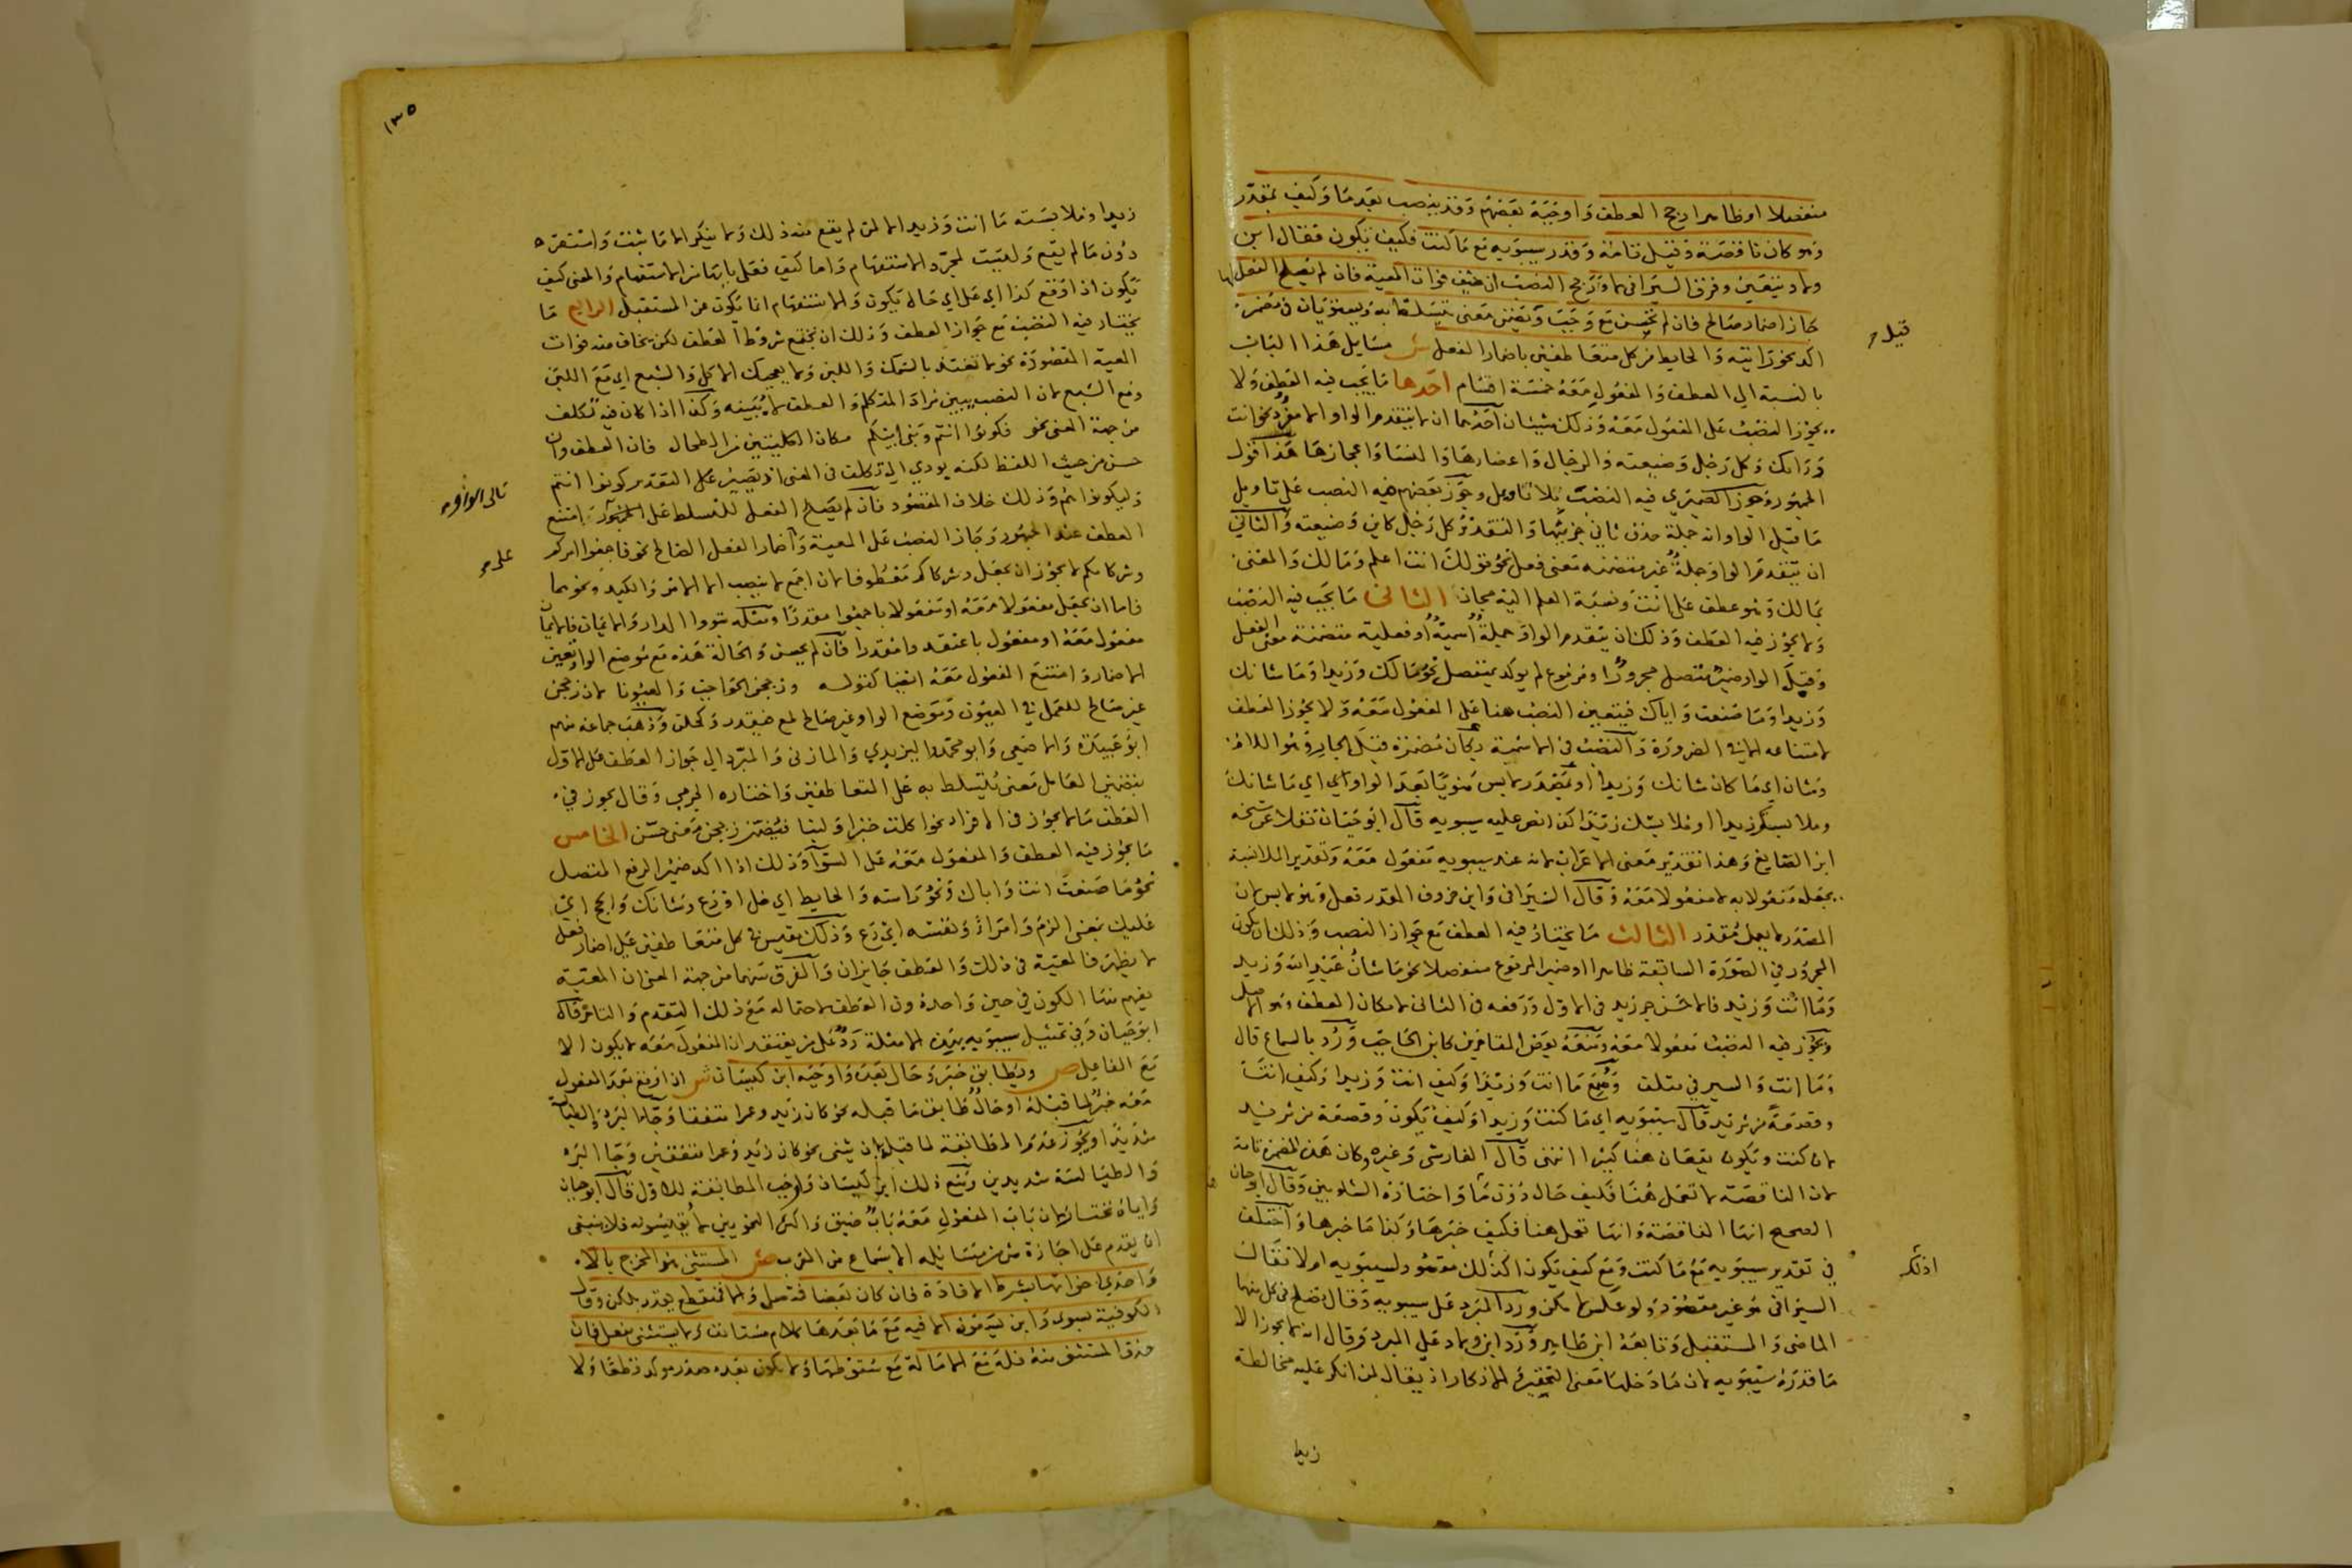 منفصلا او ظاهرا رجح العطف واوجبه بعضهم وقد ينصب بعد ما وكيف بمقدر
وهو كان ناقصة وقيل تامة وقدر سيبويه مع ما كنت وكيف تكون فقال ابن
ولاد يتعين وفرق السيرافي لا ورجح النصب ان خيف فوات المعية فان لم يصلح الفعل لها
جاز اضمار صالح فان لم يحسن مع وجب وتضمن معنى يتسلط به ويستويان في مضمر
قبل
اكد نحو رأيته والحايط من كل متعاطفين باضمار الفعل ش مسايل هذا الباب
بالنسبة الى العطف والمفعول معه خمسة اقسام احدها ما يجب فيه العطف ولا
يجوز النصب على المفعول معه وذلك شيئان احدهما ان لا يتقدم الواو الا مفرد نحو انت
ورايك وكل رجل وضيعته والرجال واعضادها والنساء واعجازها هذا قول
الجمهور وجوز الصيمري فيه النصب بلا تاويل وجوز بعضهم فيه النصب على تاويل
ما قبل الواو انه جملة حذف ثاني جزئيها والتقدير كل رجل كاين وضيعته والثاني
ان يتقدم الواو جملة غير متضمنة معنى فعل نحو قولك انت اعلم ومالك والمعنى
بمالك وهو عطف على انت ونسبة العلم اليه مجاز الثاني ما يجب فيه النصب
ولا يجوز فيه العطف وذلك ان يتقدم الواو جملة اسمية او فعلية متضمنة معنى الفعل
وقبل الواو ضمير متصل مجرور او مرفوع لم يوكد بمنفصل نحو مالك وزيدا وما شانك
وزيدا وما صنعت واياك فيتعين النصب هنا على المفعول معه ولا يجوز العطف
لامتناعه الا في الضرورة والنصب في الاسمية بكان مضمرة قبل الجار وهو اللام
وشان اي ما كان شانك وزيدا او بمصدر لابس منويا بعد الواو اي ما شانك
وملابستك زيدا او ملابستك زيدا كذا نص عليه سيبويه قال ابو حيان نقلا عن شيخه
ابن الصايغ وهذا تقدير معنى لا اعراب لانه عند سيبويه مفعول معه وتقدير الملابسة
يجعله مفعولا به لا مفعولا معه وقال السيرافي وابن خروف المقدر فعل وهو لابس لان
المصدر لا يعمل مقدرا الثالث ما يختار فيه العطف مع جواز النصب وذلك ان يكون
المجرور في الصورة السابقة ظاهرا او ضمير المرفوع منفصلا نحو ما شان عبد الله وزيد
وما انت وزيد فالاحسن جر زيد في الاول ورفعه في الثاني لامكان العطف وهو الاصل
ويجوز فيه النصب مفعولا معه ومنعه بعض المتاخرين كابن الحاجب ورد بالسماع قال
وما انت والسير في متلف وسمع ما انت وزيدا وكيف انت وزيدا وكيف انت
وقصعة من ثريد قال سيبويه اي ما كنت وزيدا وكيف تكون وقصعة من ثريد
لان كنت وتكون يقعان هنا كثيرا انتهى قال الفارسي وغيره وكان هذه المضمرة تامة
لان الناقصة لا تعمل هنا فكيف حال دون ما واختاره الشلوبين وقال ابو حيان
الصحيح انها الناقصة وانها تعمل هنا فكيف خبرها وكذا ما خبرها واختلف
في تقدير سيبويه مع ما كنت ومع كيف تكون اكذلك مقصود لسيبويه او لا فقال
اذلك
السيرافي هو غير مقصود ولو عكس لامكن ورد المبرد على سيبويه وقال يصلح في كل منهما
الماضي والمستقبل وتابعه ابن طاهر ورد ابن ولاد على المبرد وقال انه لا يجوز الا
ما قدره سيبويه لان ما دخلها معنى التحقير والانكار اذ يقال لمن انكر عليه مخالطة
زيدا
١٣٥
زيدا وملابسته ما انت وزيدا لا لمن لم يقع منه ذلك ولا ينكر الا ما ثبت واستقر
دون ما لم يقع وليست لمجرد الاستفهام واما كيف فعلى بابها من الاستفهام والمعنى كيف
تكون اذا وقع كذا اي على اي حال تكون والاستفهام انما يكون عن المستقبل الرابع ما
يختار فيه النصب مع جواز العطف وذلك ان تجتمع شروط العطف لكن يخاف منه فوات
المعية المقصودة نحو لا تغتذ بالسمك واللبن ولا يعجبك الاكل والشبع اي مع اللبن
ومع الشبع لان النصب يبين مراد المتكلم والعطف لا يبينه وكذا اذا كان فيه تكلف
من جهة المعنى نحو فكونوا انتم وبني ابيكم مكان الكليتين من الطحال فان العطف وان
حسن من حيث اللفظ لكنه يودي الى تكلف في المعنى اذ يصير على التقدير كونوا انتم
وليكونوا لكم وذلك خلاف المقصود فان لم يصلح الفعل للتسلط على امتنع
تالي الواو
العطف عند الجمهور وجاز النصب على المعية واضمار الفعل الصالح نحو فاجمعوا امركم
على
وشركاءكم لا يجوز ان يجعل وشركاءكم معطوفا لان اجمع لا ينصب الا الامر والكيد ونحوهما
فاما ان يجعل مفعولا معه او مفعولا باجمعوا مقدرا ومثله تبوؤا الدار والايمان فالايمان
مفعول معه او مفعول باعتقدوا مقدرا فان لم يحسن والحالة هذه مع موضع الواو تعين
الاضمار وامتنع المفعول معه ايضا كقوله وزججن الحواجب والعيونا لان زججن
غير صالح للعمل في العيون وموضع الواو غير صالح لمع فيقدر وكحلن وذهب جماعة منهم
ابو عبيدة والاصمعي وابو محمد اليزيدي والمازني والمبرد الى جواز العطف على الاول
بتضمين العامل معنى يتسلط به على المتعاطفين واختاره الجرمي وقال يجوز في
العطف ما لا يجوز في الافراد نحو اكلت خبزا ولبنا فيضمن زججن معنى حسن الخامس
ما يجوز فيه العطف والمفعول معه على السوا وذلك اذا اكد ضمير الرفع المتصل
نحو ما صنعت انت واباك ونحو راسه والحايط اي خل او دع وشانك والحج اي
عليك بمعنى الزم وامرأ ونفسه اي دع وذلك مقيس في كل متعاطفين على اضمار فعل
لا يظهر فالمعية في ذلك والعطف جايزان والفرق بينهما من جهة المعنى ان المعية
يفهم منها الكون في حين واحد دون العطف لاحتماله مع ذلك التقدم والتاخر قال
ابو حيان وفي تمثيل سيبويه بهذه الامثلة رد على من يعتقد ان المفعول معه لا يكون الا
مع الفاعل ص ويطابق خبر وحال بعده واوجبه ابن كيسان ش اذا وقع بعد المفعول
معه خبر لما قبله او حال طابق ما قبله نحو كان زيد وعمرا متفقا وجاء البرد والطيالسة
شديدا ويجوز عدم المطابقة لما قبله بان يثنى نحو كان زيد وعمرا متفقين وجا البرد
والطيالسة شديدين ومنع ذلك ابن كيسان واوجب المطابقة للاول قال ابو حيان
واياه نختار لان باب المفعول معه باب ضيق واكثر النحويين لا يقيسونه فلا ينبغي
ان يقدم على اجازة شي من مسائله الا بسماع من العرب ص المستثنى هو المخرج بالا
واحدى اخواتها بشرط الافادة فان كان بعضا فمتصل والا فمنقطع يقدر بلكن وقال
الكوفية بسوى وابن يسعون الا فيه مع ما بعدها كلام مستانف ولا يستثنى بفعل فان
حذف المستثنى منه فله مع الا ما له مع سقوطها ولا يكون بعده مصدر موكد قطعا ولا